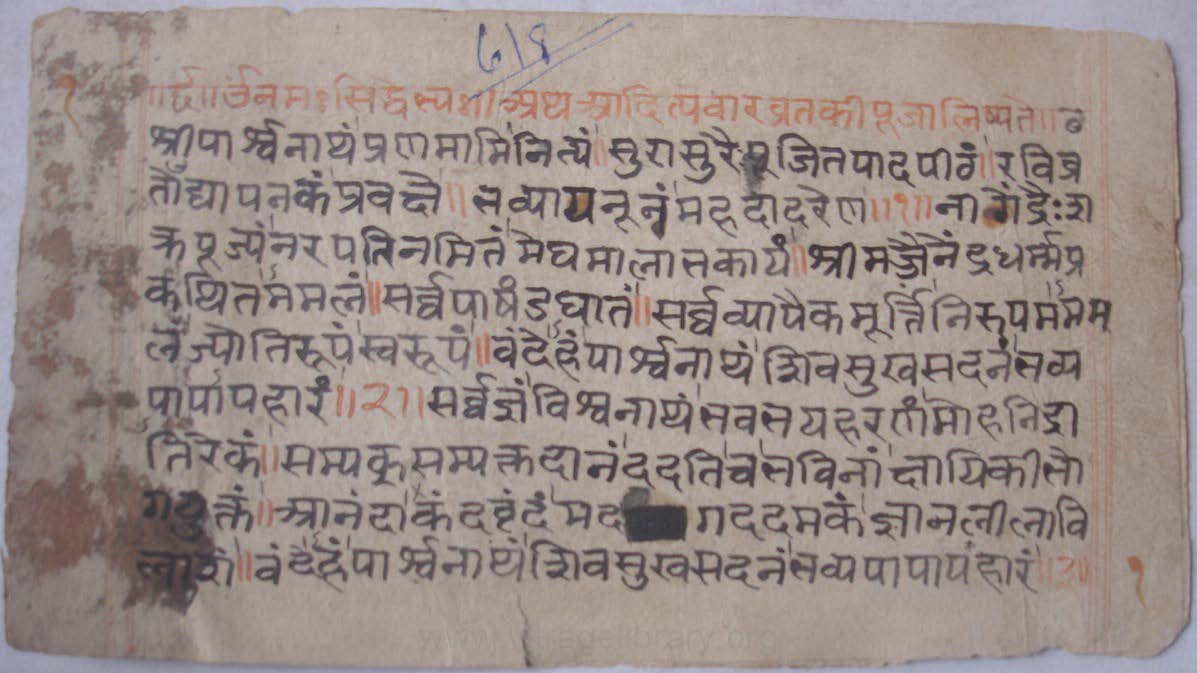 ७१९
१
॥र्द॥ उंनमः सिद्धेभ्यः॥ अथ आदित्यवार व्रत की पूजा लिष्यते॥ छ
श्रीपार्श्वनाथं प्रणमामि नित्यं॥ सुरासुरैः पूजित पादपीठं॥ रवि व्र
तोद्यापनकं प्रवक्ष्ये॥ भव्याय नूनं महदादरेण॥१॥ नागेंद्रैः श
क्र पूज्यं नरपति नमितं मेघमाला सकायं॥ श्रीमज्जैनेंद्र धर्म्म प्र
कथितममलं॥ सर्व्व पाषंड घातं॥ सर्व्व व्यापैक मूर्त्ति निरुपममम
लं ज्योतिरूपं स्वरूपं॥ वंदेहं पार्श्वनाथं शिवसुखसदनं भव्य
पापापहारं॥२॥ सर्व्वज्ञं विश्वनाथं भवभयहरणं मोहनिद्रा
तिरेकं॥ सम्यक् सम्यक्त दानं ददति च भविनां क्षायिकी भो
गयुक्तं॥ आनंदाकंद वृंदं मद गद दमकं ज्ञानलीलावि
लाशं॥ वंदेहं पार्श्वनाथं शिवसुखसदनं भव्यपापापहारं॥३॥
१